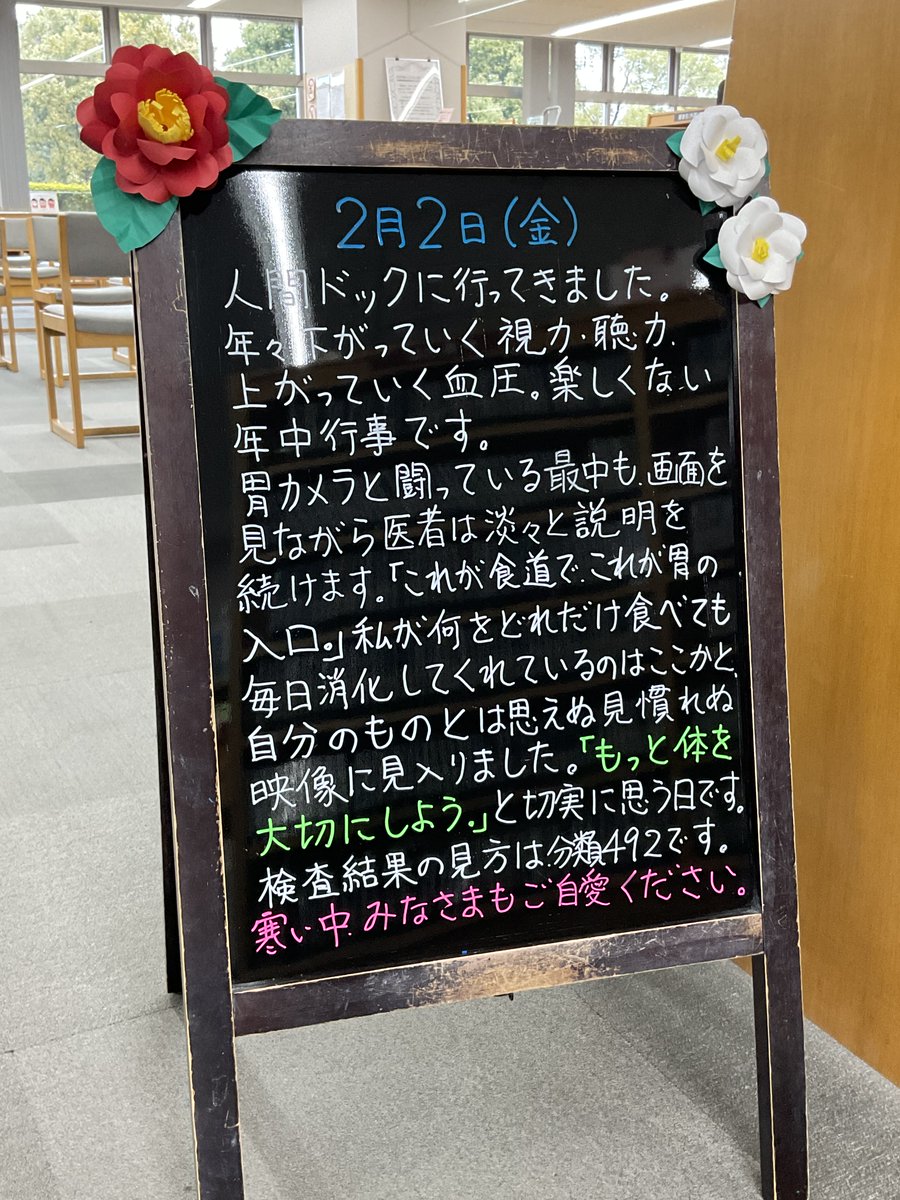 2月2日(金)
人間ドックに行ってきました。
年々下がっていく視力・聴力、
上がっていく血圧。楽しくない
年中行事です。
胃カメラと闘っている最中も、画面を
見ながら医者は淡々と説明を
続けます。「これが食道で、これが胃の
入口。」私が何をどれだけ食べても
毎日消化してくれているのはここかと、
自分のものとは思えぬ見慣れぬ
映像に見入りました。「もっと体を
大切にしよう。」と切実に思う日です。
検査結果の見方は、分類492です。
寒い中、みなさまもご自愛ください。